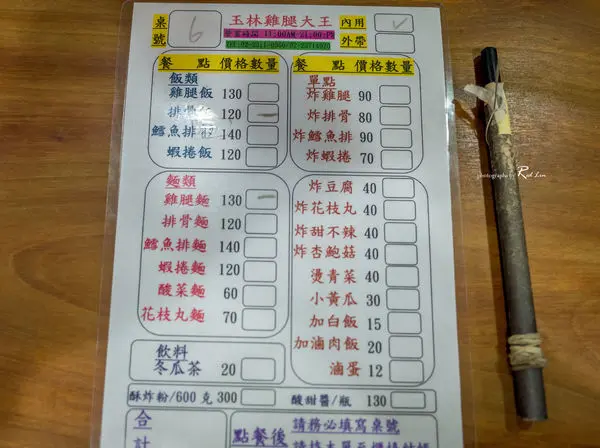 桌號 6
玉林雞腿大王
營業時間 11:00AM-21:00PM
內用 ✓
外帶
餐 點 價格 數量
飯類
雞腿飯 130
排骨飯 120
鱈魚排飯 140
蝦捲飯 120
麵類
雞腿麵 130
排骨麵 120
鱈魚排麵 140
蝦捲麵 120
酸菜麵 60
花枝丸麵 70
飲料
冬瓜茶 20
餐 點 價格 數量
單點
炸雞腿 90
炸排骨 80
炸鱈魚排 90
炸蝦捲 70
炸豆腐 40
炸花枝丸 40
炸甜不辣 40
炸杏鮑菇 40
燙青菜 40
小黃瓜 30
加白飯 15
加滷肉飯 20
滷蛋 12
酥炸粉/600 克 300
酸甜醬/瓶 130
合計
點餐後
請務必填寫桌號
photography by Rod Lin